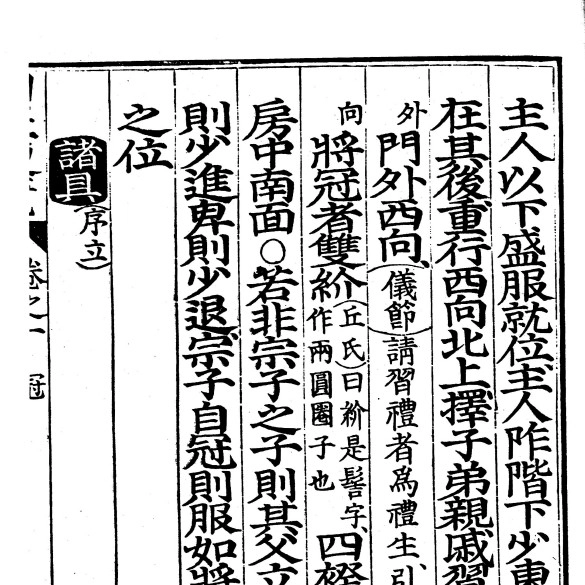 主人以下盛服就位主人阼階下少東
在其後重行西向北上擇子弟親戚習
外門外西向(儀節)請習禮者為禮生引
向將冠者雙紒(丘氏)曰紒是髻字作兩圓圈子也四䙆
房中南面○若非宗子之子則其父立
則少進卑則少退宗子自冠則服如將
之位
諸具(序立)
卷之一 冠